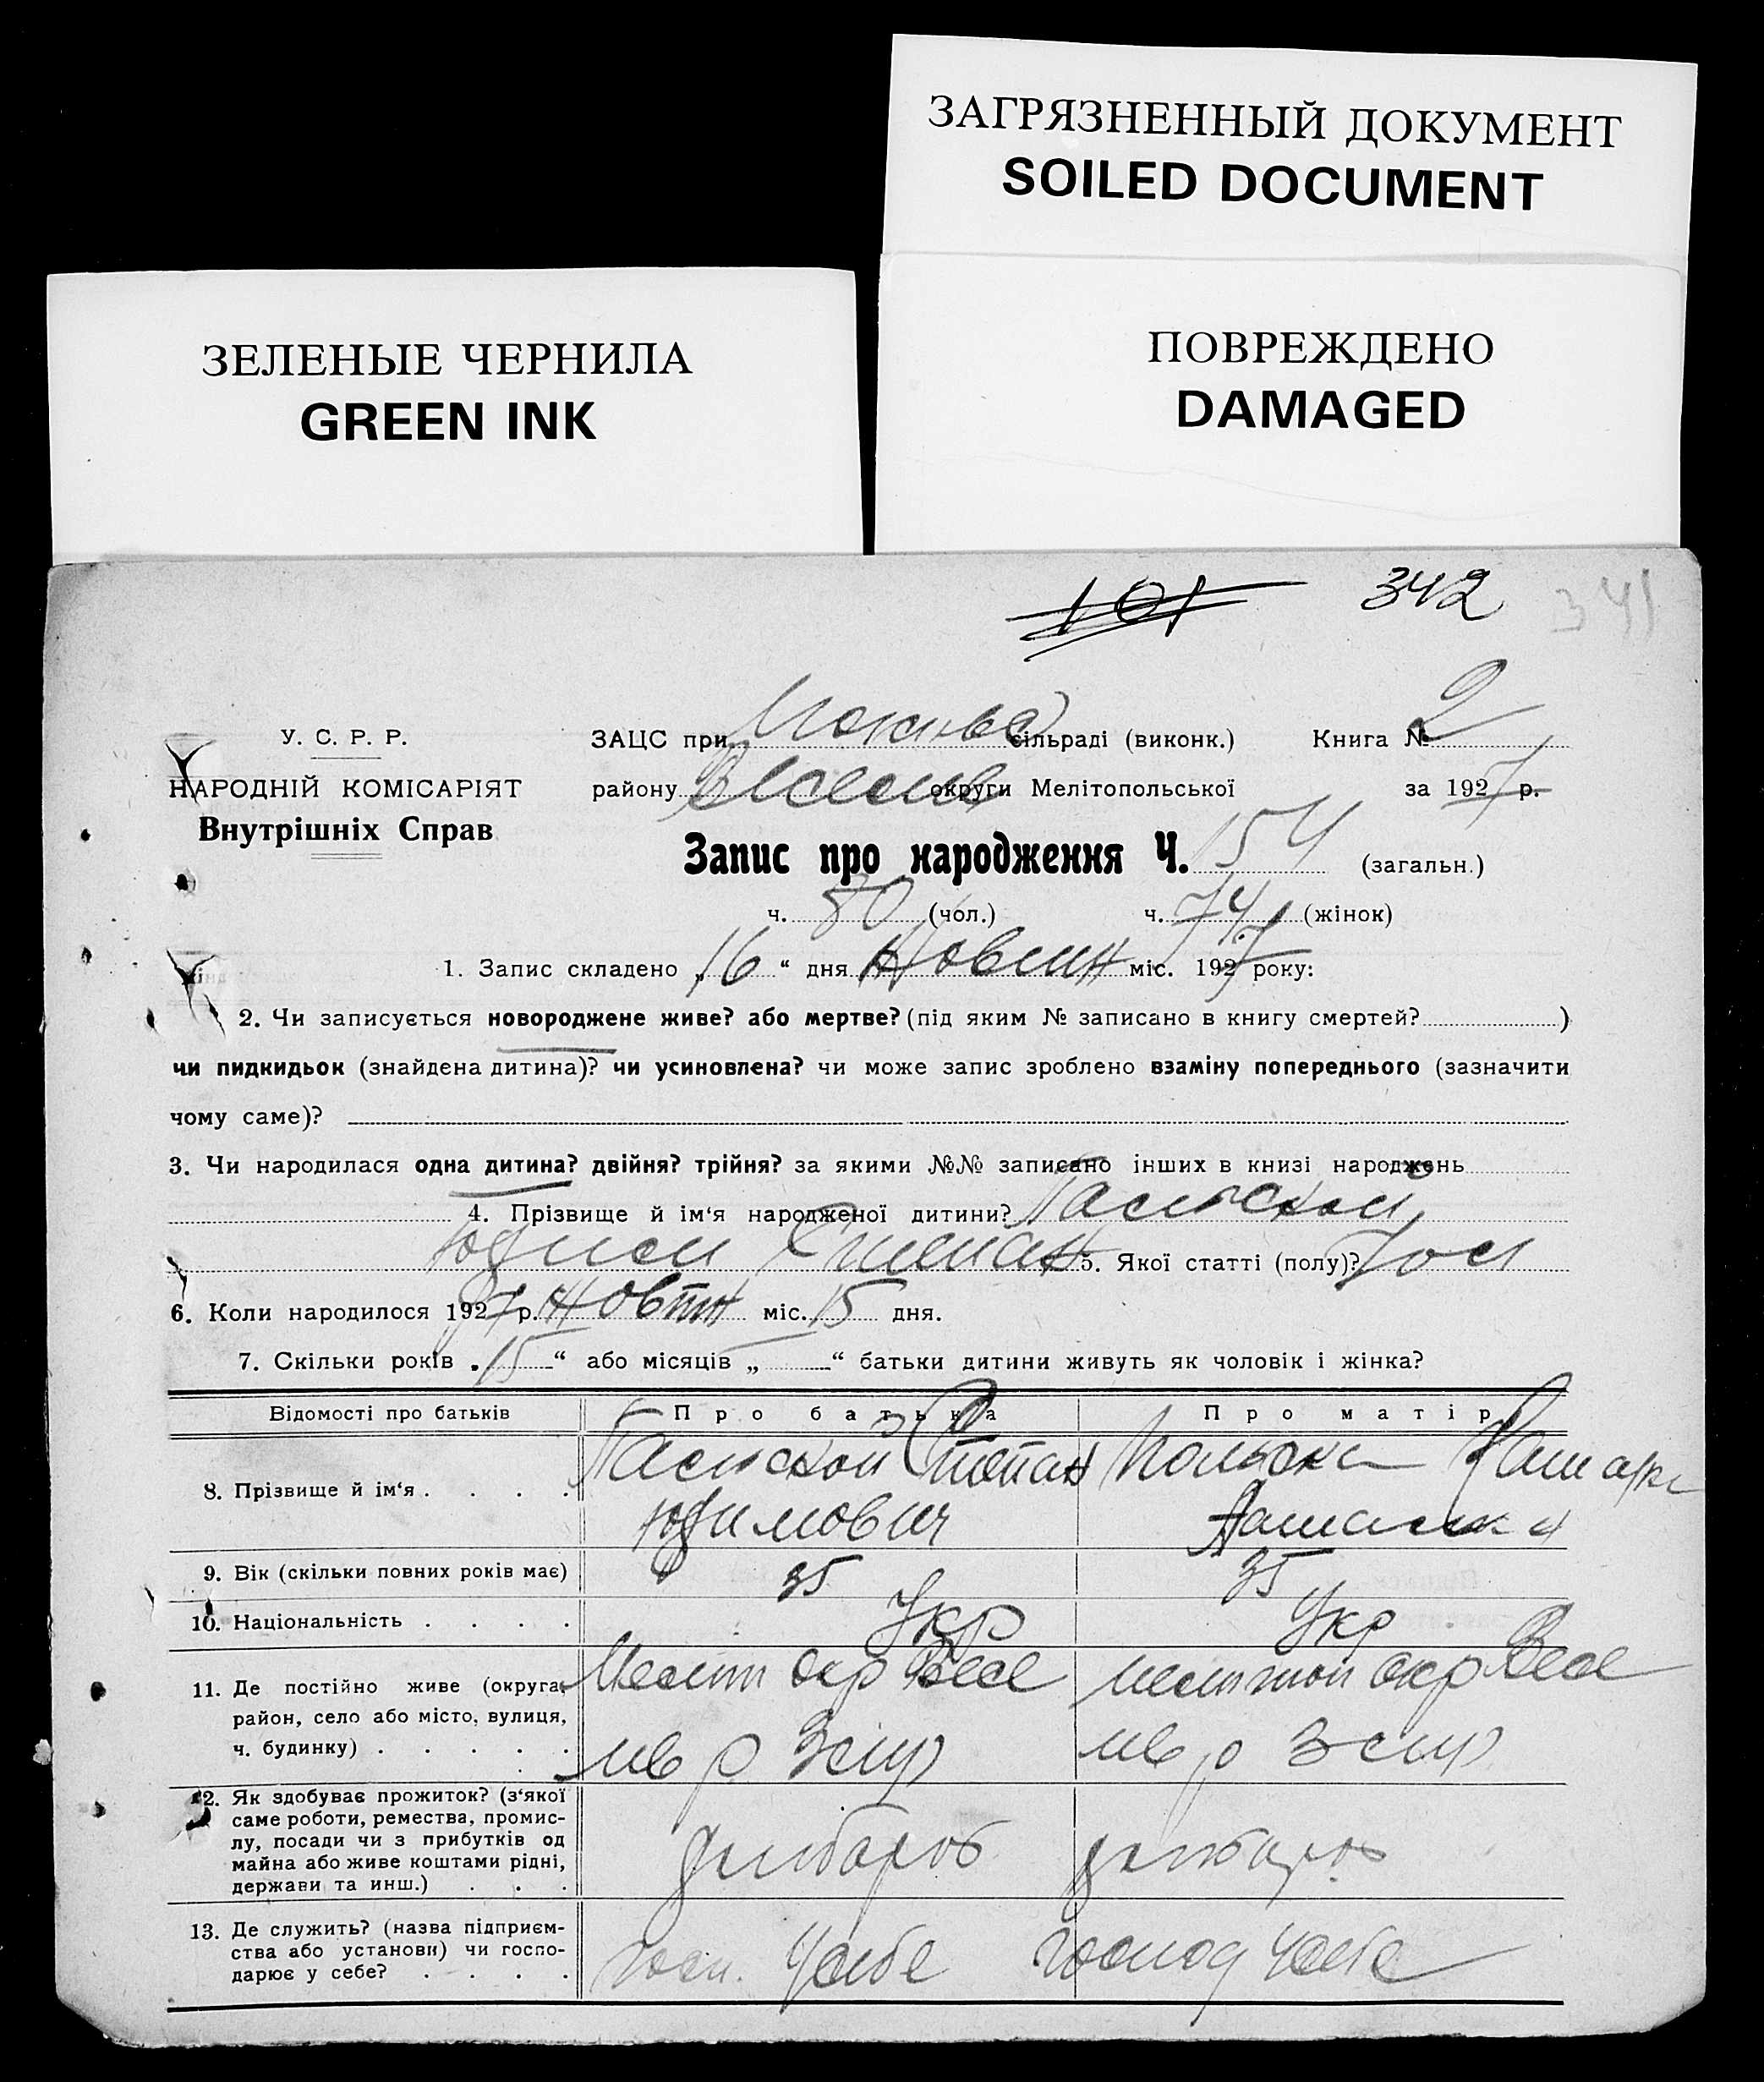 ЗАГРЯЗНЕННЫЙ ДОКУМЕНТ
SOILED DOCUMENT
ЗЕЛЕНЫЕ ЧЕРНИЛА
GREEN INK
ПОВРЕЖДЕНО
DAMAGED
101 342 341
У. С. Р. Р.
НАРОДНІЙ КОМІСАРІЯТ
Внутрішніх Справ
ЗАЦС при сільраді (виконк.) Книга № 2
району округи Мелітопольської за 1927 р.
Запис про народження Ч. 154 (загальн.)
ч. 80 (чол.) ч. 74 (жінок)
1. Запис складено „16“ дня міс. 1927 року:
2. Чи записується новороджене живе? або мертве? (під яким № записано в книгу смертей? )
чи пидкидьок (знайдена дитина)? чи усиновлена? чи може запис зроблено взаміну попереднього (зазначити
чому саме)?
3. Чи народилася одна дитина? двійня? трійня? за якими №№ записано інших в книзі народжень
4. Прізвище й ім‘я народженої дитини?
5. Якої статті (полу)?
6. Коли народилося 1927 р. Жовтн міс. 15 дня.
7. Скільки років „15“ або місяців „ “ батьки дитини живуть як чоловік і жінка?
Відомості про батьків Про батька Про матір
8. Прізвище й ім‘я . . . .
Юхимович
9. Вік (скільки повних років має) 35 35
10. Національність . . . . Укр Укр
11. Де постійно живе (округа,
район, село або місто, вулиця,
ч. будинку) . . . . .
Меліт окр Весе
окр Весе
12. Як здобуває прожиток? (з‘якої
саме роботи, ремества, промис-
лу, посади чи з прибутків од
майна або живе коштами рідні,
держави та инш.) . . .
13. Де служить? (назва підприєм-
ства або установи) чи госпо-
дарює у себе? . . . .
госп. у себе господ у себе